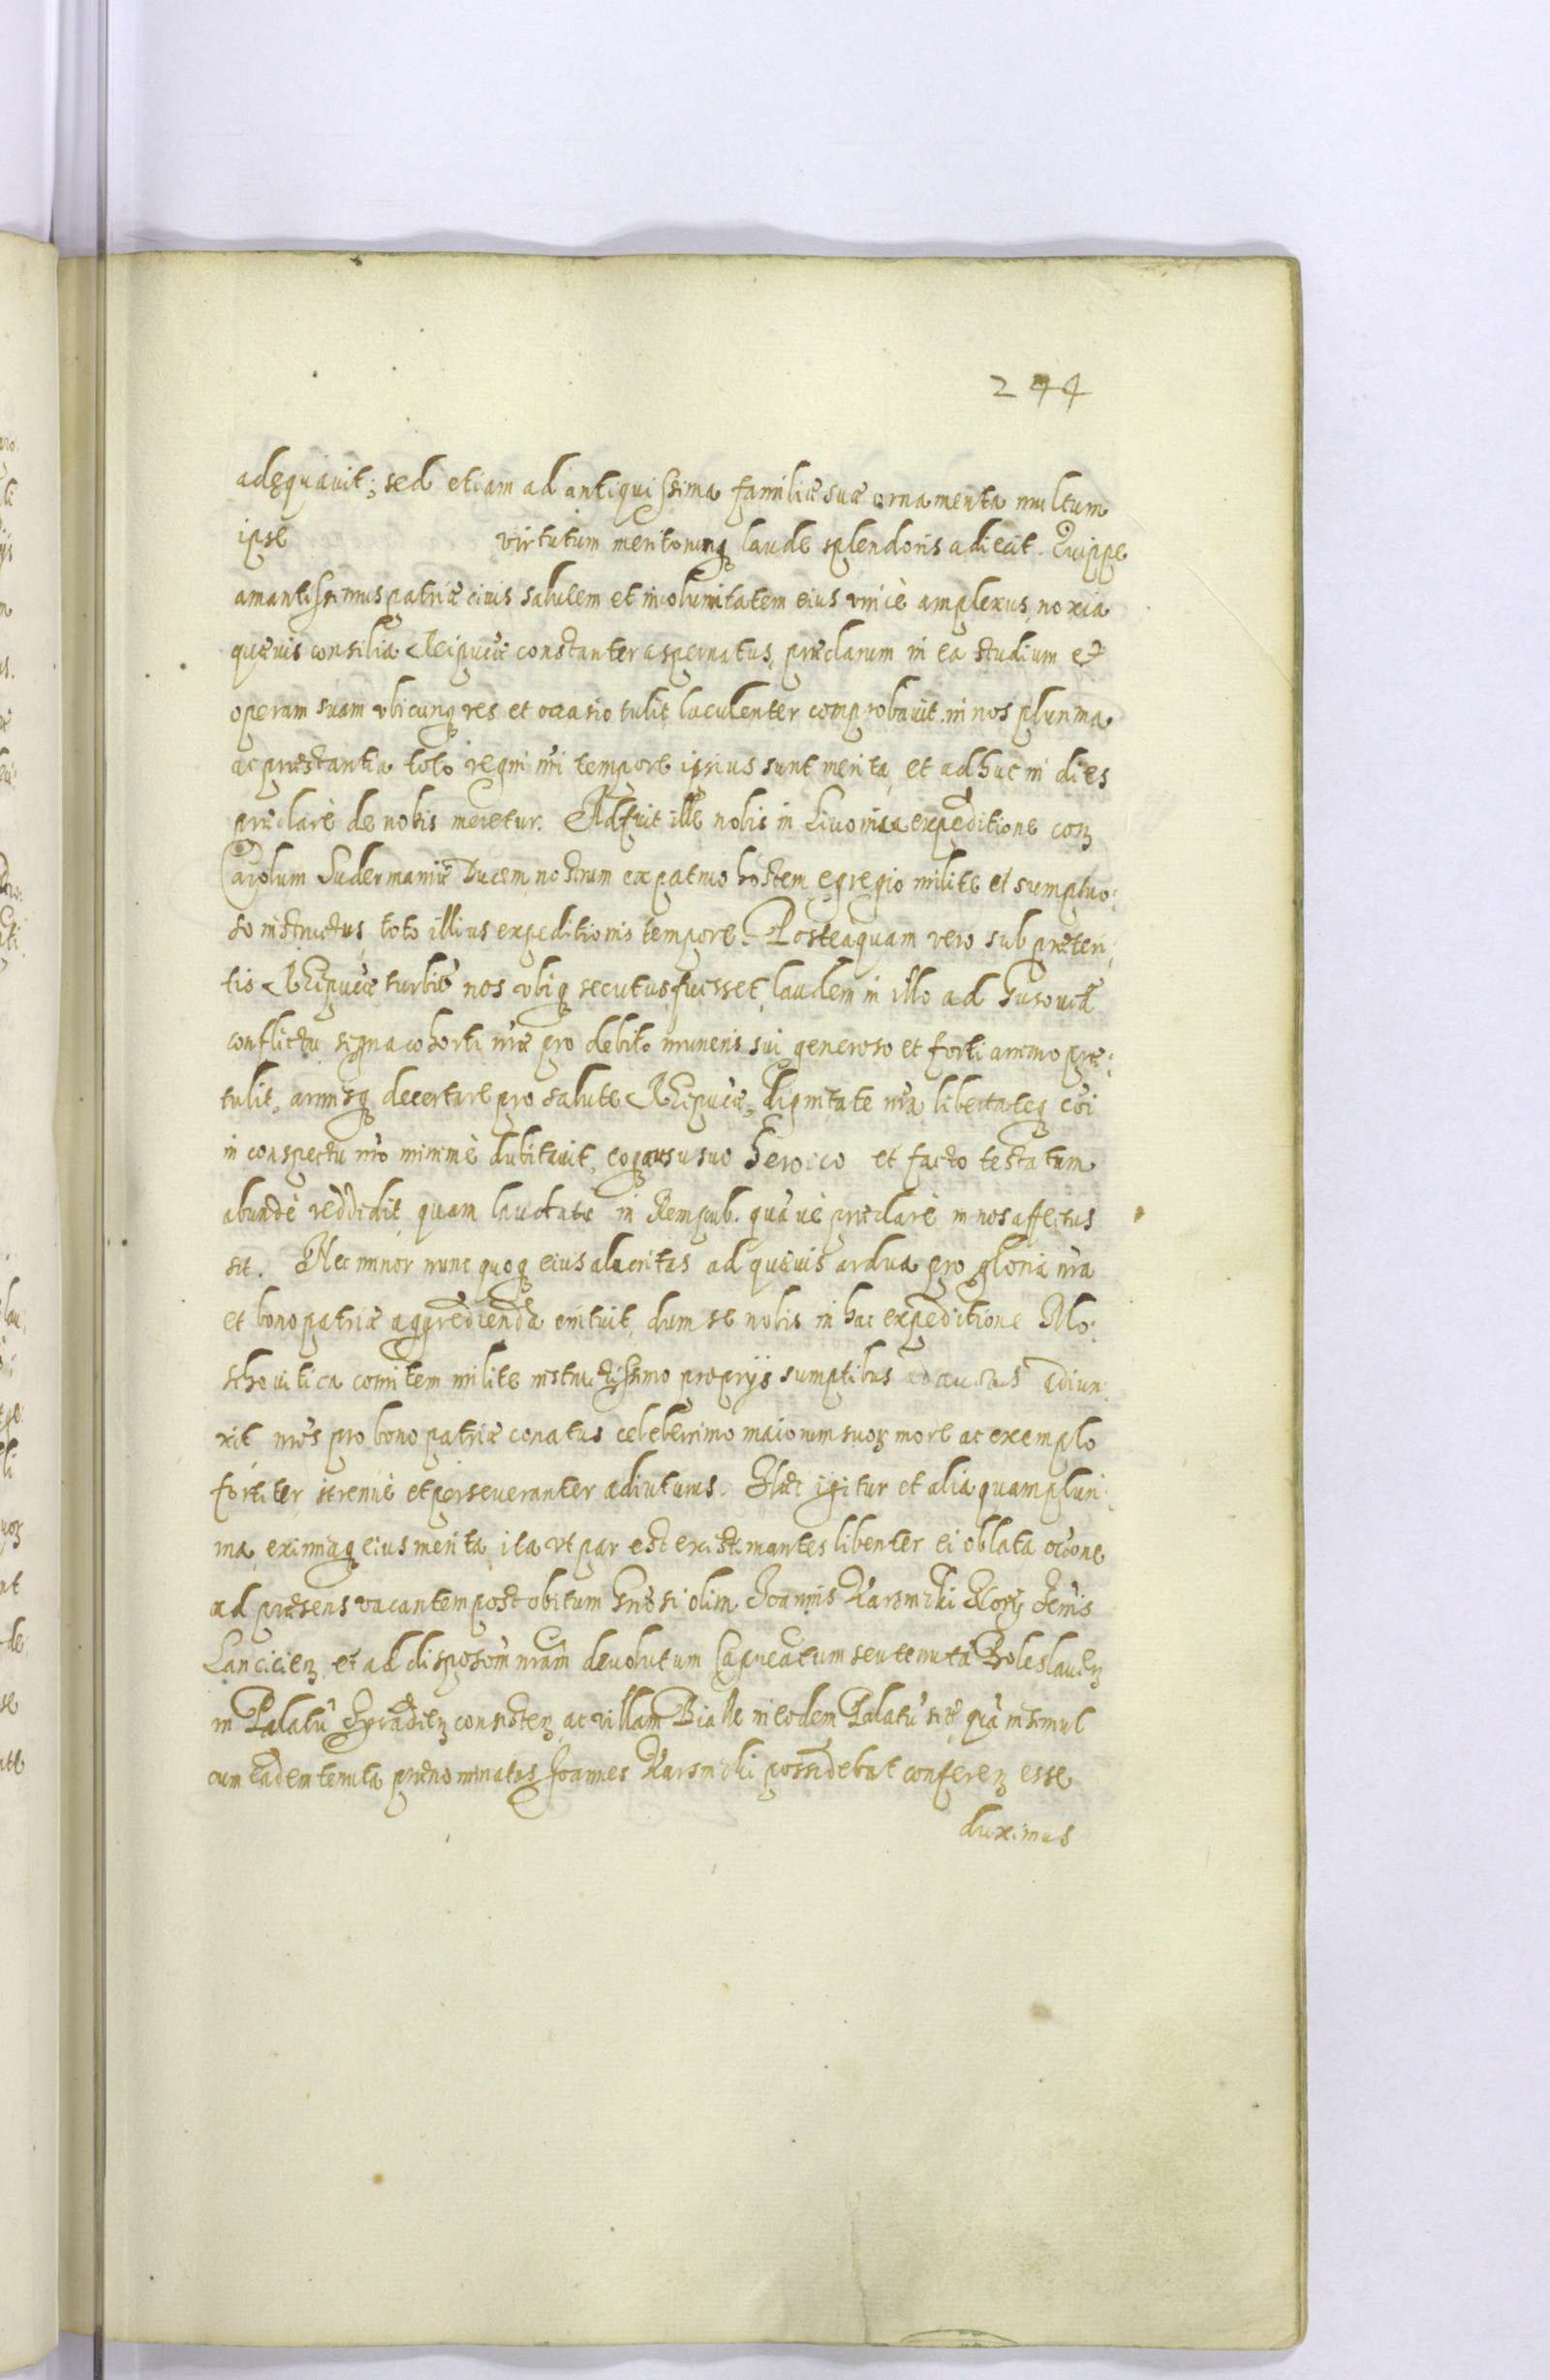 244
adęquavit; sed etiam ad antiquissima familiæ suæ ornamenta multum
ipse virtutum meritorumq laude splendoris adiecit. Quippe
amantissimus patriæ civis salutem et incolumitatem eius vnicè amplexus, noxia
quævis consilia Reipucæ constanter aspernatus, præclarum in ea studium et
operam suam vbicunq res et occasio tulit luculenter comprobavit. in nos plurima
ac præstantia toto regni nri tempore ipsius sunt merita, et adhuc in dies
præclarè de nobis meretur. Adfuit ille nobis in Livonica expeditione con
Carolum Sudermaniæ Ducem nostrum ex patruo hostem egregio milite et sumptuo:
so instructus toto illius expeditionis tempore. Posteaquam vero sub præteri:
tis Reipucæ turbis nos vbiq secutus fuisset, laudem in illo ad Gusovią
conflictu signa cohorti nræ pro debito muneris sui generoso et forti animo præ:
tulit, armisq decertare pro salute Reipucæ, dignitate nra libertateq cōi
in conspectu nro minimè dubitavit, eoq ausu suo heroico et facto testatum
abundè reddidit quam in Rempub. quàvè præclarè in nos affectus
sit. Nec minor nunc quoq eius alacritas ad quævis ardua pro gloria nra
et bono patriæ aggredienda enituit, dum se nobis in hac expeditione Mo:
schovitica comitem milite instructissimo proprijs sumptibus adiun:
xit nros pro bono patriæ conatus celeberrimo maiorum suorz more ac exemplo
fortiter strenuè et perseveranter adiuturus. Hæc igitur et alia quampluri:
ma, eximiaq eius merita, ita vt par est existimantes libenter ei oblata occone
ad præsens vacantem post obitum Gnosi olim Joannis Karsnicki
Lanciciēn et ad disposōm nram devolutum Capneatum seu tenutā Boleslavien
in Palatū Syradien consisten, ac villam Bialle in eodem Palatū sitā quā insimul
cum eadem tenuta prænominatus Joannes Karsnicki possidebat conferen esse
duximus